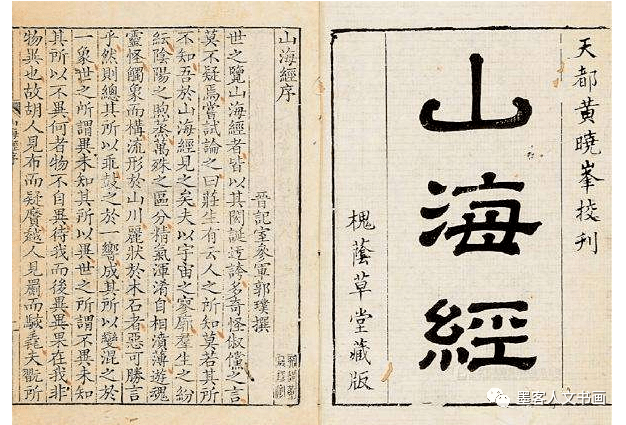 天都黄曉峯挍刊
山海經
槐蔭草堂藏版
山海經序
晉記室參軍郭璞撰
世之覽山海經者皆以其閎誕迂誇多奇怪俶儻之言
莫不疑焉嘗試論之曰莊生有云人之所知莫若其所
不知吾於山海經見之矣夫以宇宙之寥廓羣生之紛
紜陰陽之煦蒸萬殊之區分精氣渾淆自相濆薄遊魂
靈怪觸象而構流形於山川麗狀於木石者惡可勝言
乎然則總其所以乖鼓之於一響成其所以變混之於
一象世之所謂異未知其所以異世之所謂不異未知
其所以不異何者物不自異待我而後異異果在我非
物異也故胡人見布而疑黂越人見罽而駭毳夫翫所
墨客人文书画